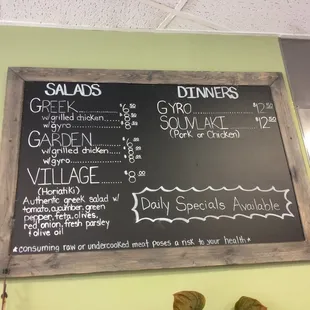 SALADS
GREEK $6.50
w/grilled chicken
w/gyro
GARDEN
w/grilled chicken
w/gyro
VILLAGE $8.00
(Horiatiki)
Authentic greek salad w/
tomato, cucumber, green
pepper, feta, olives,
red onion, fresh parsley
+ olive oil
DINNERS
GYRO $12.50
SOUVLAKI $12.50
(Pork or Chicken)
Daily Specials Available
*consuming raw or undercooked meat poses a risk to your health*